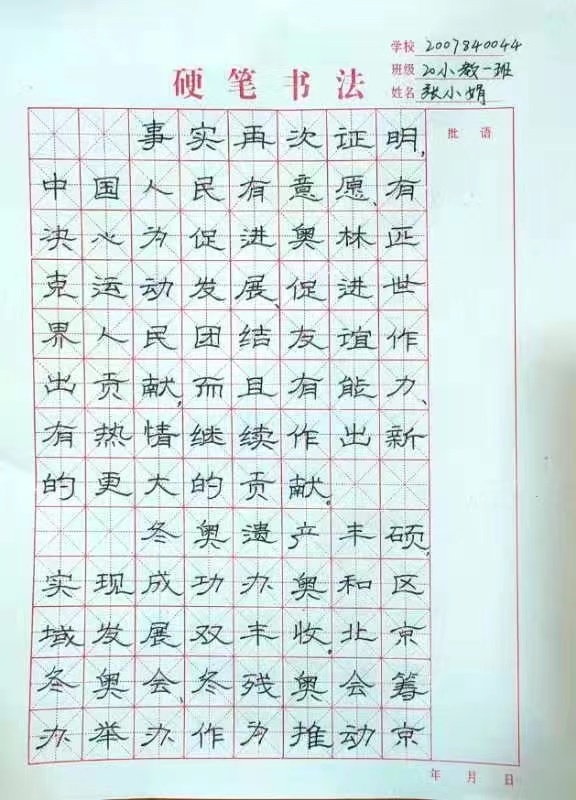 学校 2007840044
硬笔书法 班级 20小教一班
姓名 张小娟
批语
事实再次证明,
中国人民有意愿、有
决心为促进奥林匹
克运动发展、促进世
界人民团结友谊作
出贡献,而且有能力、
有热情继续作出新
的更大的贡献。
冬奥遗产丰硕,
实现成功办奥和区
域发展双丰收。北京
冬奥会、冬残奥会筹
办举办作为推动京
年 月 日